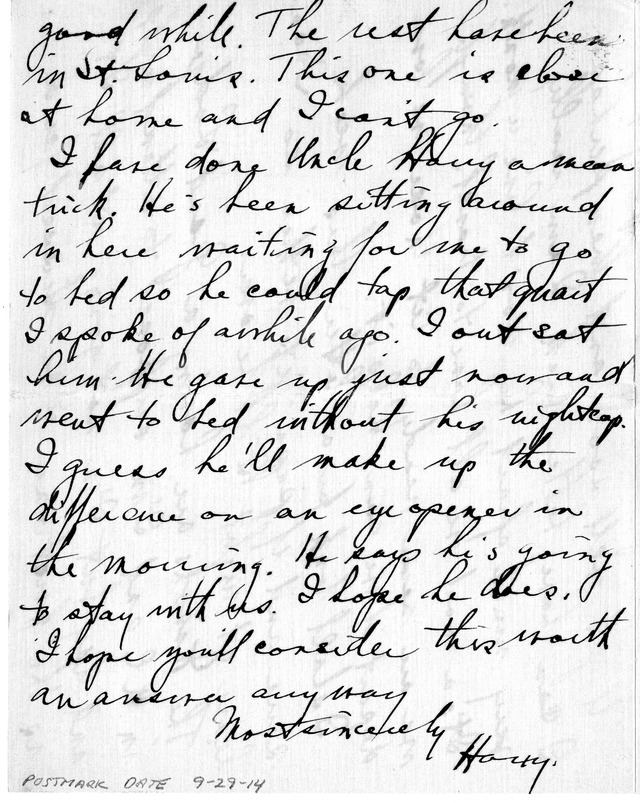 good while. The rest have been
in St. Louis. This one is close
at home and I can't go.
I have done Uncle Harry a mean
trick. He's been sitting around
in here waiting for me to go
to bed so he could tap that quart
I spoke of awhile ago. I out sat
him. He gave up just now and
went to bed without his nightcap.
I guess he'll make up the
difference on an eye opener in
the morning. He says he's going
to stay with us. I hope he does.
I hope you'll consider this worth
an answer anyway
Most sincerely
Harry.
POSTMARK DATE 9-29-14